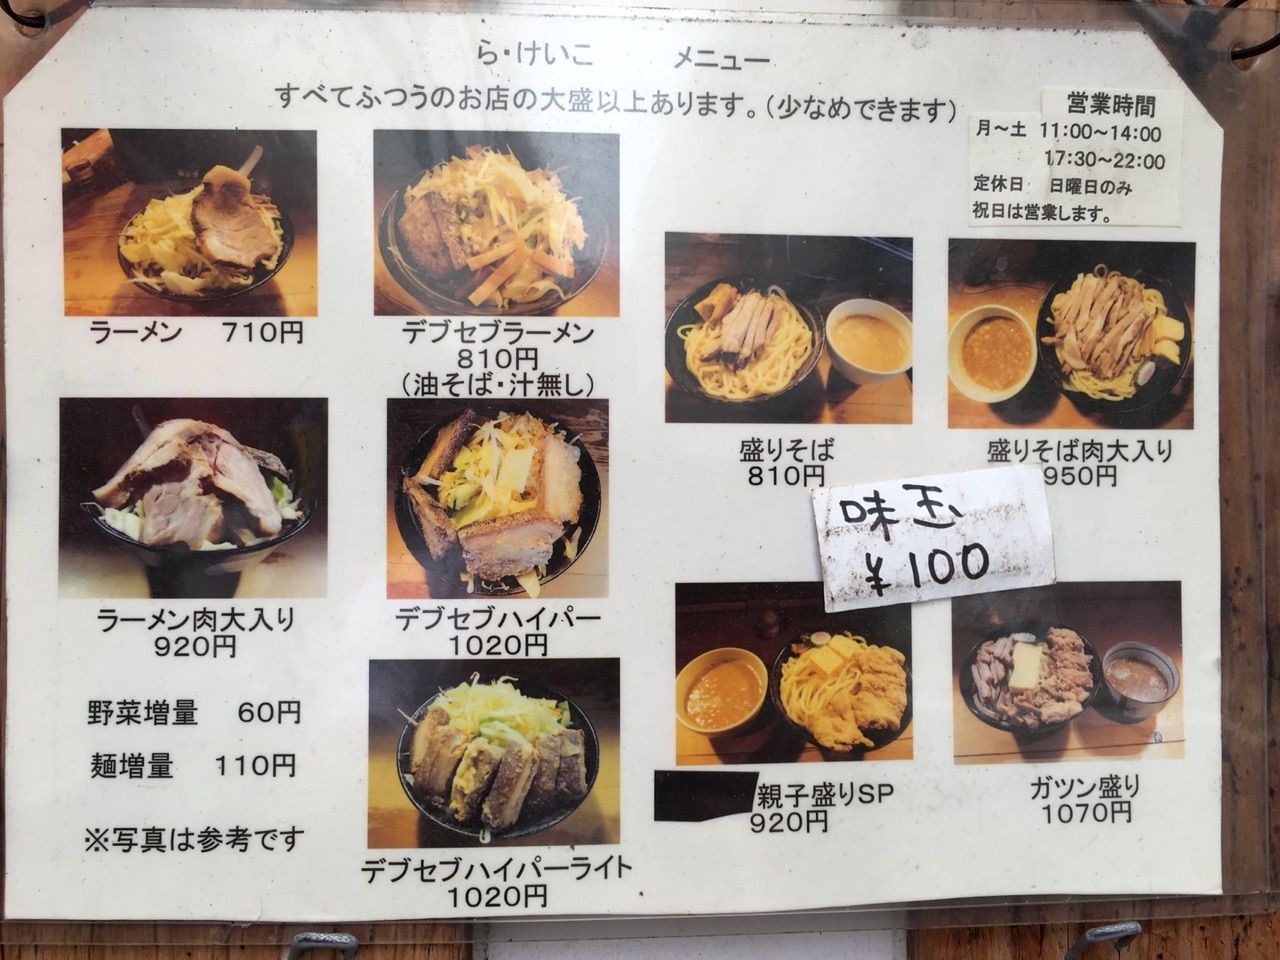 ら・けいこ　　メニュー
すべてふつうのお店の大盛以上あります。（少なめできます）
営業時間
月～土 11:00～14:00
17:30～22:00
定休日　日曜日のみ
祝日は営業します。
ラーメン　710円
デブセブラーメン
810円
（油そば・汁無し）
盛りそば
810円
盛りそば肉大入り
950円
味玉
¥100
ラーメン肉大入り
920円
デブセブハイパー
1020円
野菜増量　60円
麺増量　110円
※写真は参考です
デブセブハイパーライト
1020円
親子盛りSP
920円
ガツン盛り
1070円